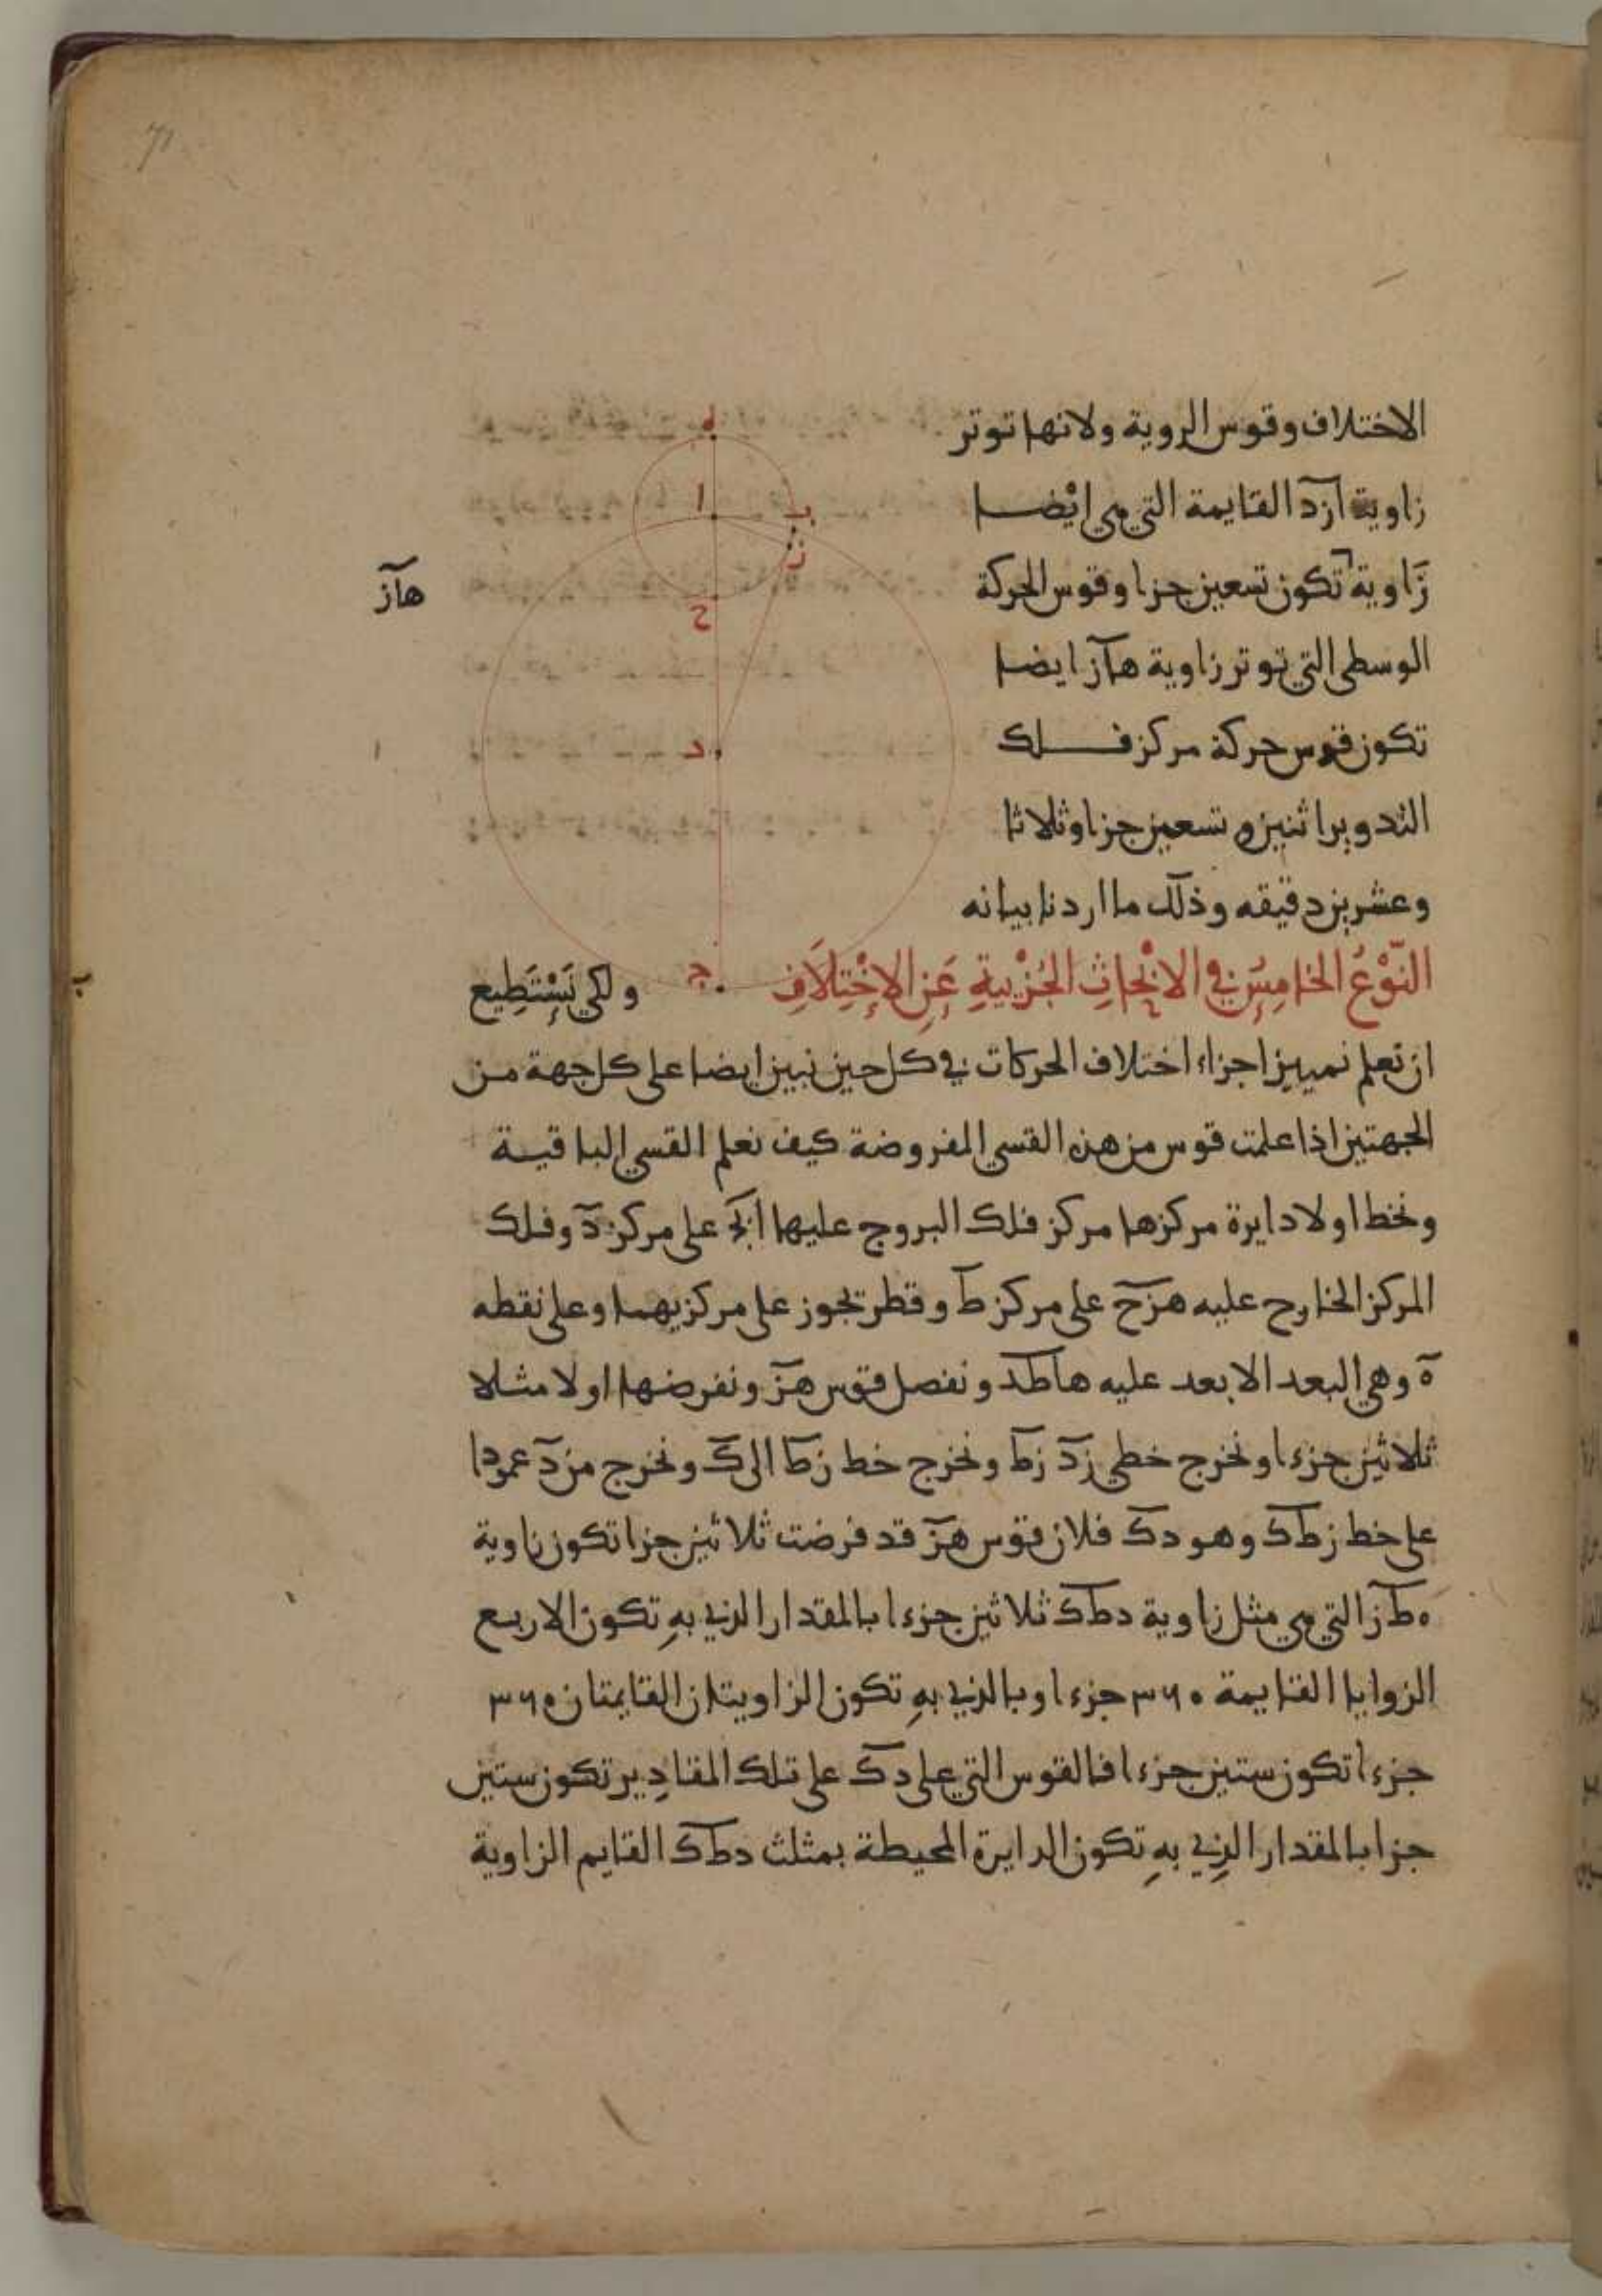 71
الاختلاف وقوس الروية ولانها توتر
زاوية ازد القايمة التي هي ايضا
زاوية تكون تسعين جزا وقوس الحركة
هاز
الوسطى التي توتر زاوية هاز ايضا
تكون قوس حركة مركز فلك
التدوير اثنين وتسعين جزا وثلاثا
وعشرين دقيقه وذلك ما اردنا بيانه
ه
ا
ب
ز
ح
د
ج
النّوْعُ الخامِسُ في الابْحاثِ الجُزْييةِ عَنِ الإخْتِلَافِ ولكي نَسْتَطِيع
ان نعلم تمييز اجزاء اختلاف الحركات في كل حين نبين ايضا على كل جهة من
الجهتين اذا علمت قوس من هذه القسي المفروضة كيف نعلم القسي الباقية
ونخط اولا دايرة مركزها مركز فلك البروج عليها ابج على مركز د وفلك
المركز الخارج عليه هزح على مركز ط وقطر تجوز على مركزيهما وعلى نقطه
ه وهي البعد الابعد عليه هاطد ونفصل قوس هز ونفرضها اولا مثلا
ثلاثين جزءا ونخرج خطي زد زط ونخرج خط زط الى ك ونخرج من د عمودا
على خط زطك وهو دك فلان قوس هز قد فرضت ثلاثين جزا تكون زاوية
ه‍طز التي هي مثل زاوية دطك ثلاثين جزءا بالمقدار الذي بهِ تكون الاربع
الزوايا القايمة ٣٦٠ جزءا وبالذي بهِ تكون الزاويتان القايمتان ٣٦٠
جزءا تكون ستين جزءا فالقوس التي على دك على تلك المقادِير تكون ستين
جزا بالمقدار الذِي بهِ تكون الدايرة المحيطة بمثلث دطك القايم الزاوية